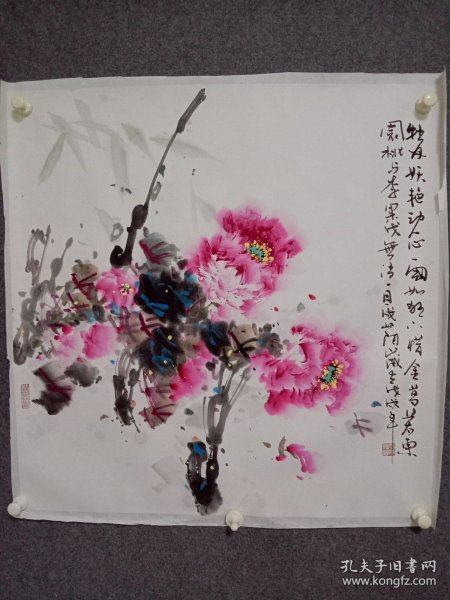 牡丹妖艳乱人心一國如狂不惜金曷若東
園桃与李果成無语自成阴歲在戊戌年
孔夫子旧书网
www.kongfz.com